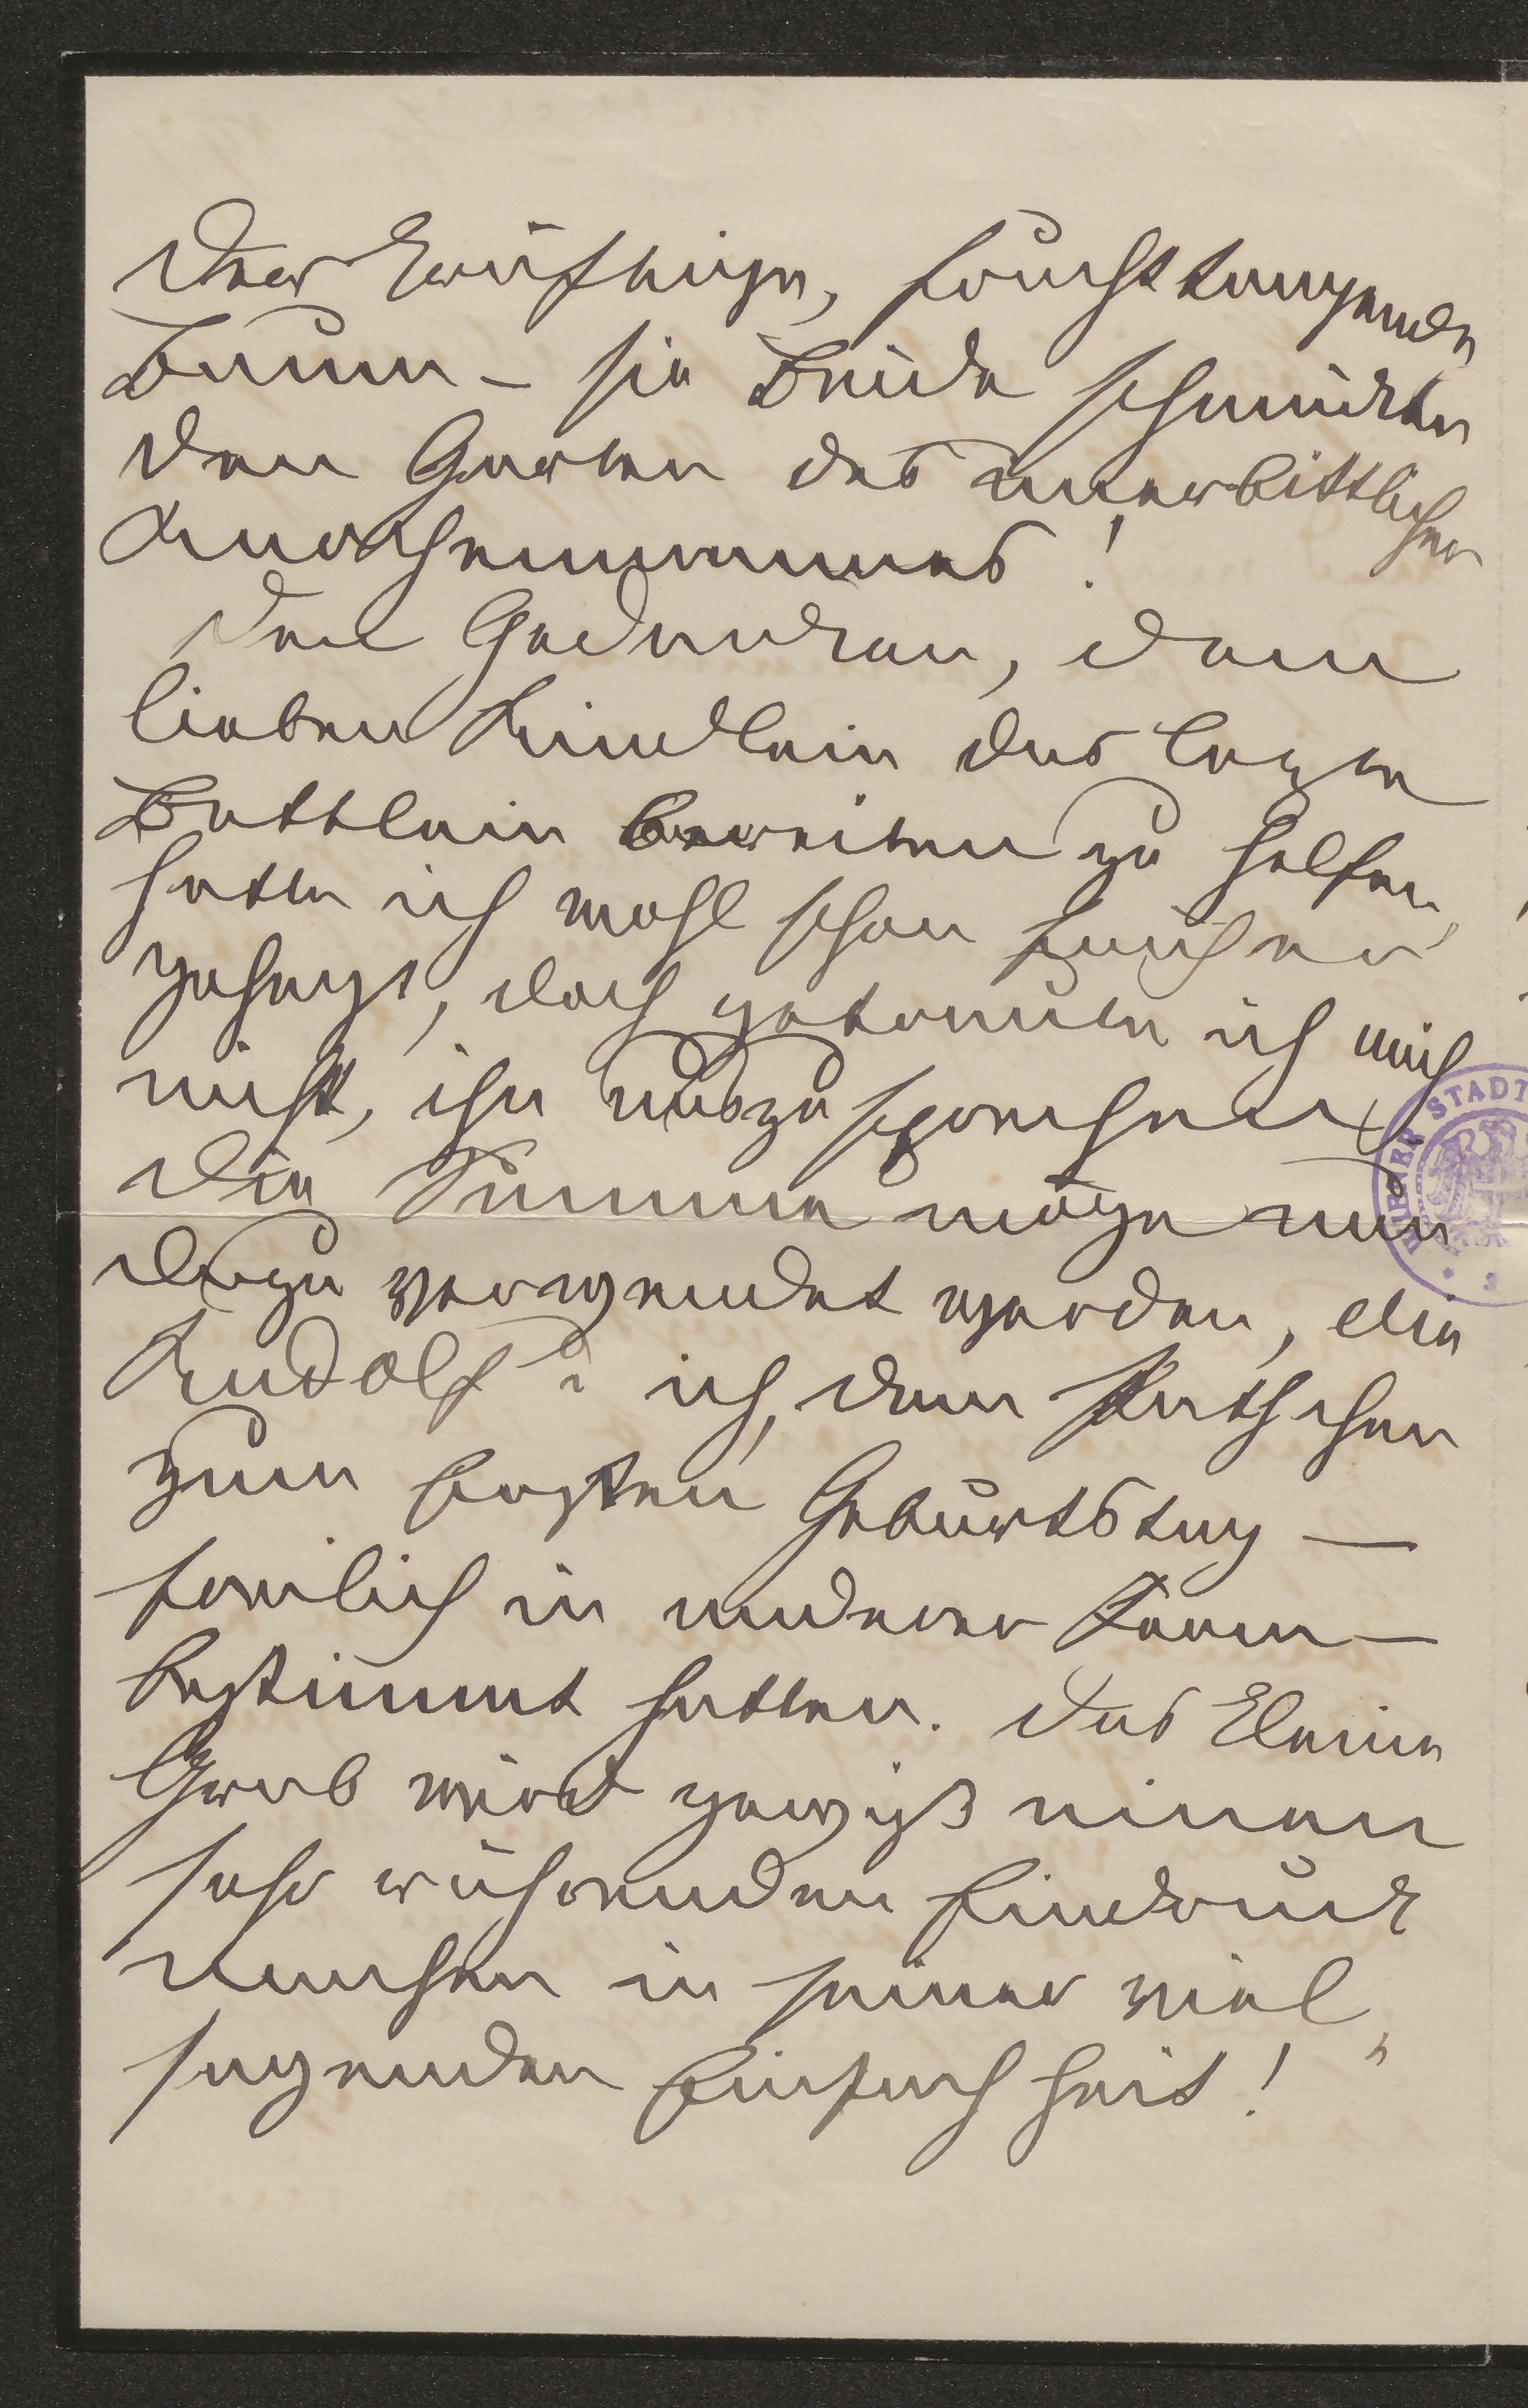 Der kräftige, fruchttragende
Baum – sie Beide schmücken
den Garten des unerbittlichen
Knochenmannes!
Den Gedanken, dem
lieben Kindlein das letzte
Bettlein bereiten zu helfen,
hatte ich wohl schon früher
gehegt, doch getraute ich mich
nicht, ihn auszusprechen.
Die Summe möge nun
dazu verwendet werden, die
Rudolf & ich, dem Hutschen
zum ersten Geburtstag –
freilich in anderer Form –
bestimmt hatten. Das kleine
Grab wird gewiß einen
sehr rührenden Eindruck
machen in seiner viel-
sagenden Einfachheit!
WIENER STADT